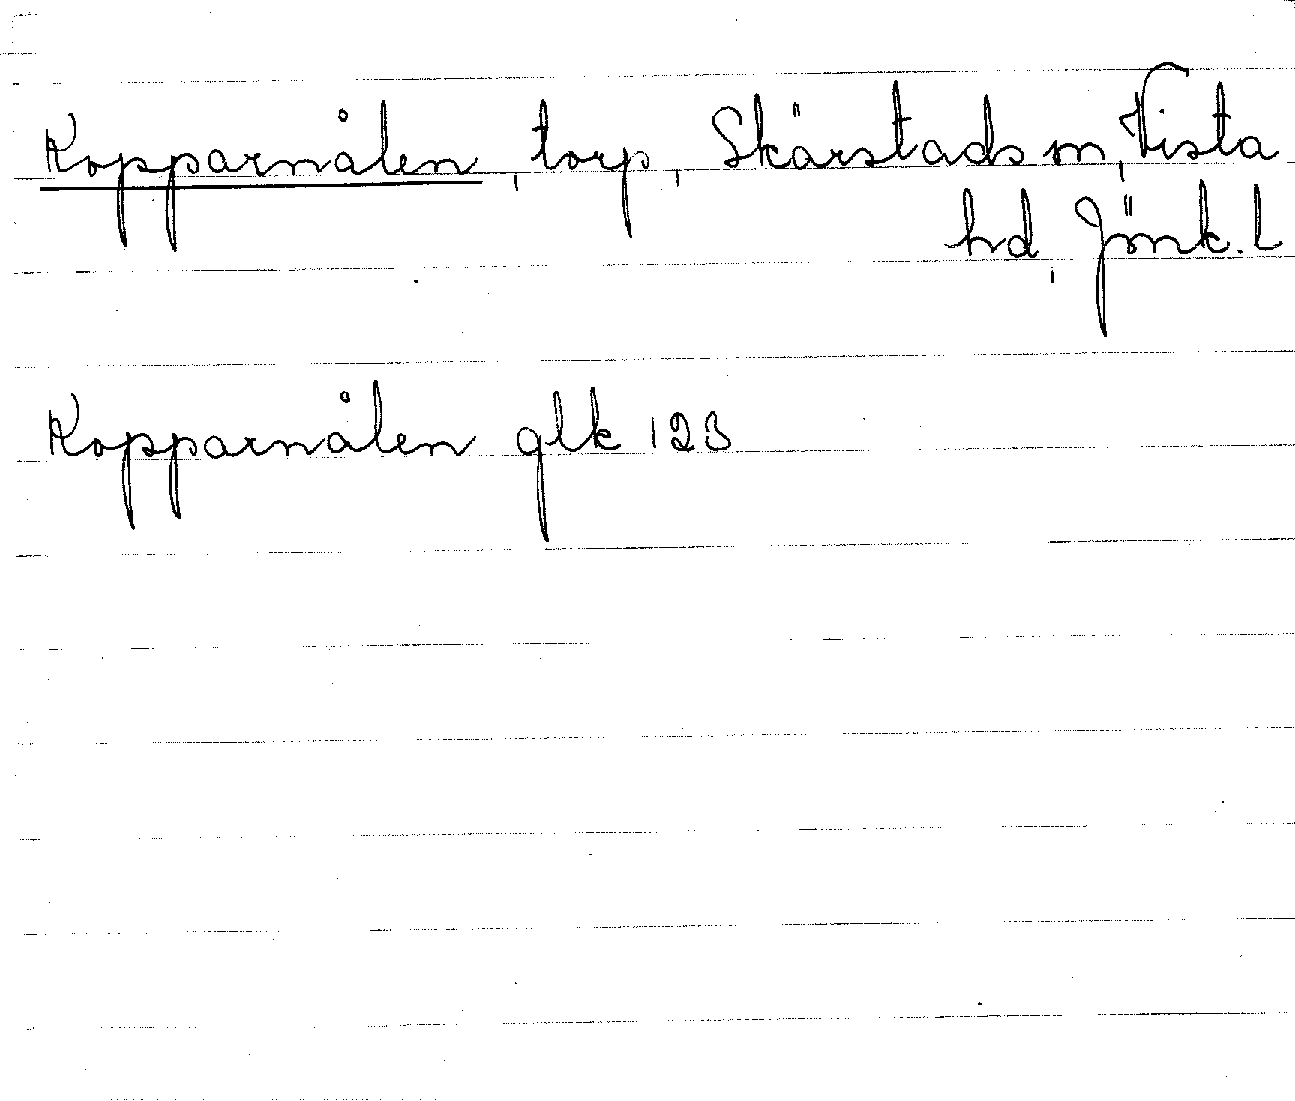 Kopparnålen, torp, Skärstads sn, Vista
hd, Jönk. l
Kopparnålen glk 123